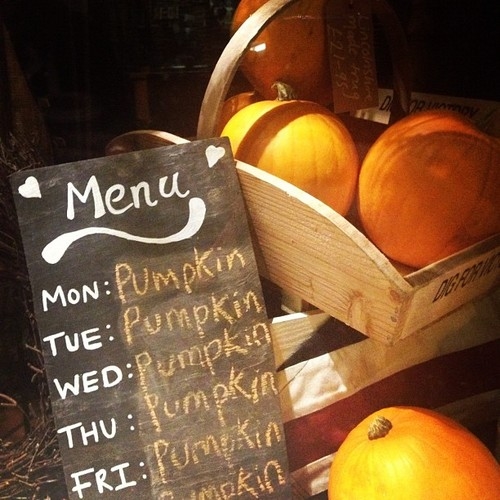 Menu
MON: PUMPKIN
TUE: PUMPKIN
WED: PUMPKIN
THU: PUMPKIN
FRI: PUMPKIN
PUMPKIN
DIG FOR
DIG FOR VICTORY